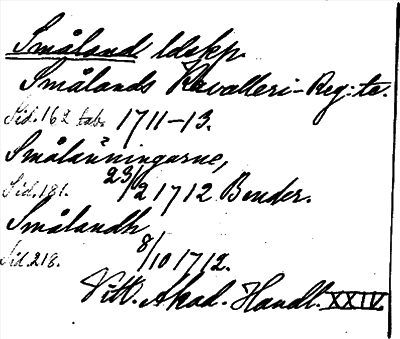 Småland ldskp.
Smålands Kavalleri-Reg:te.
Sid. 162 tab. 1711-13.
Smålänningarne,
Sid. 181. 23/2 1712 Bender.
Smålandh
Sid. 218. 8/10 1712.
Vitt. Akad. Handl. XXIV.